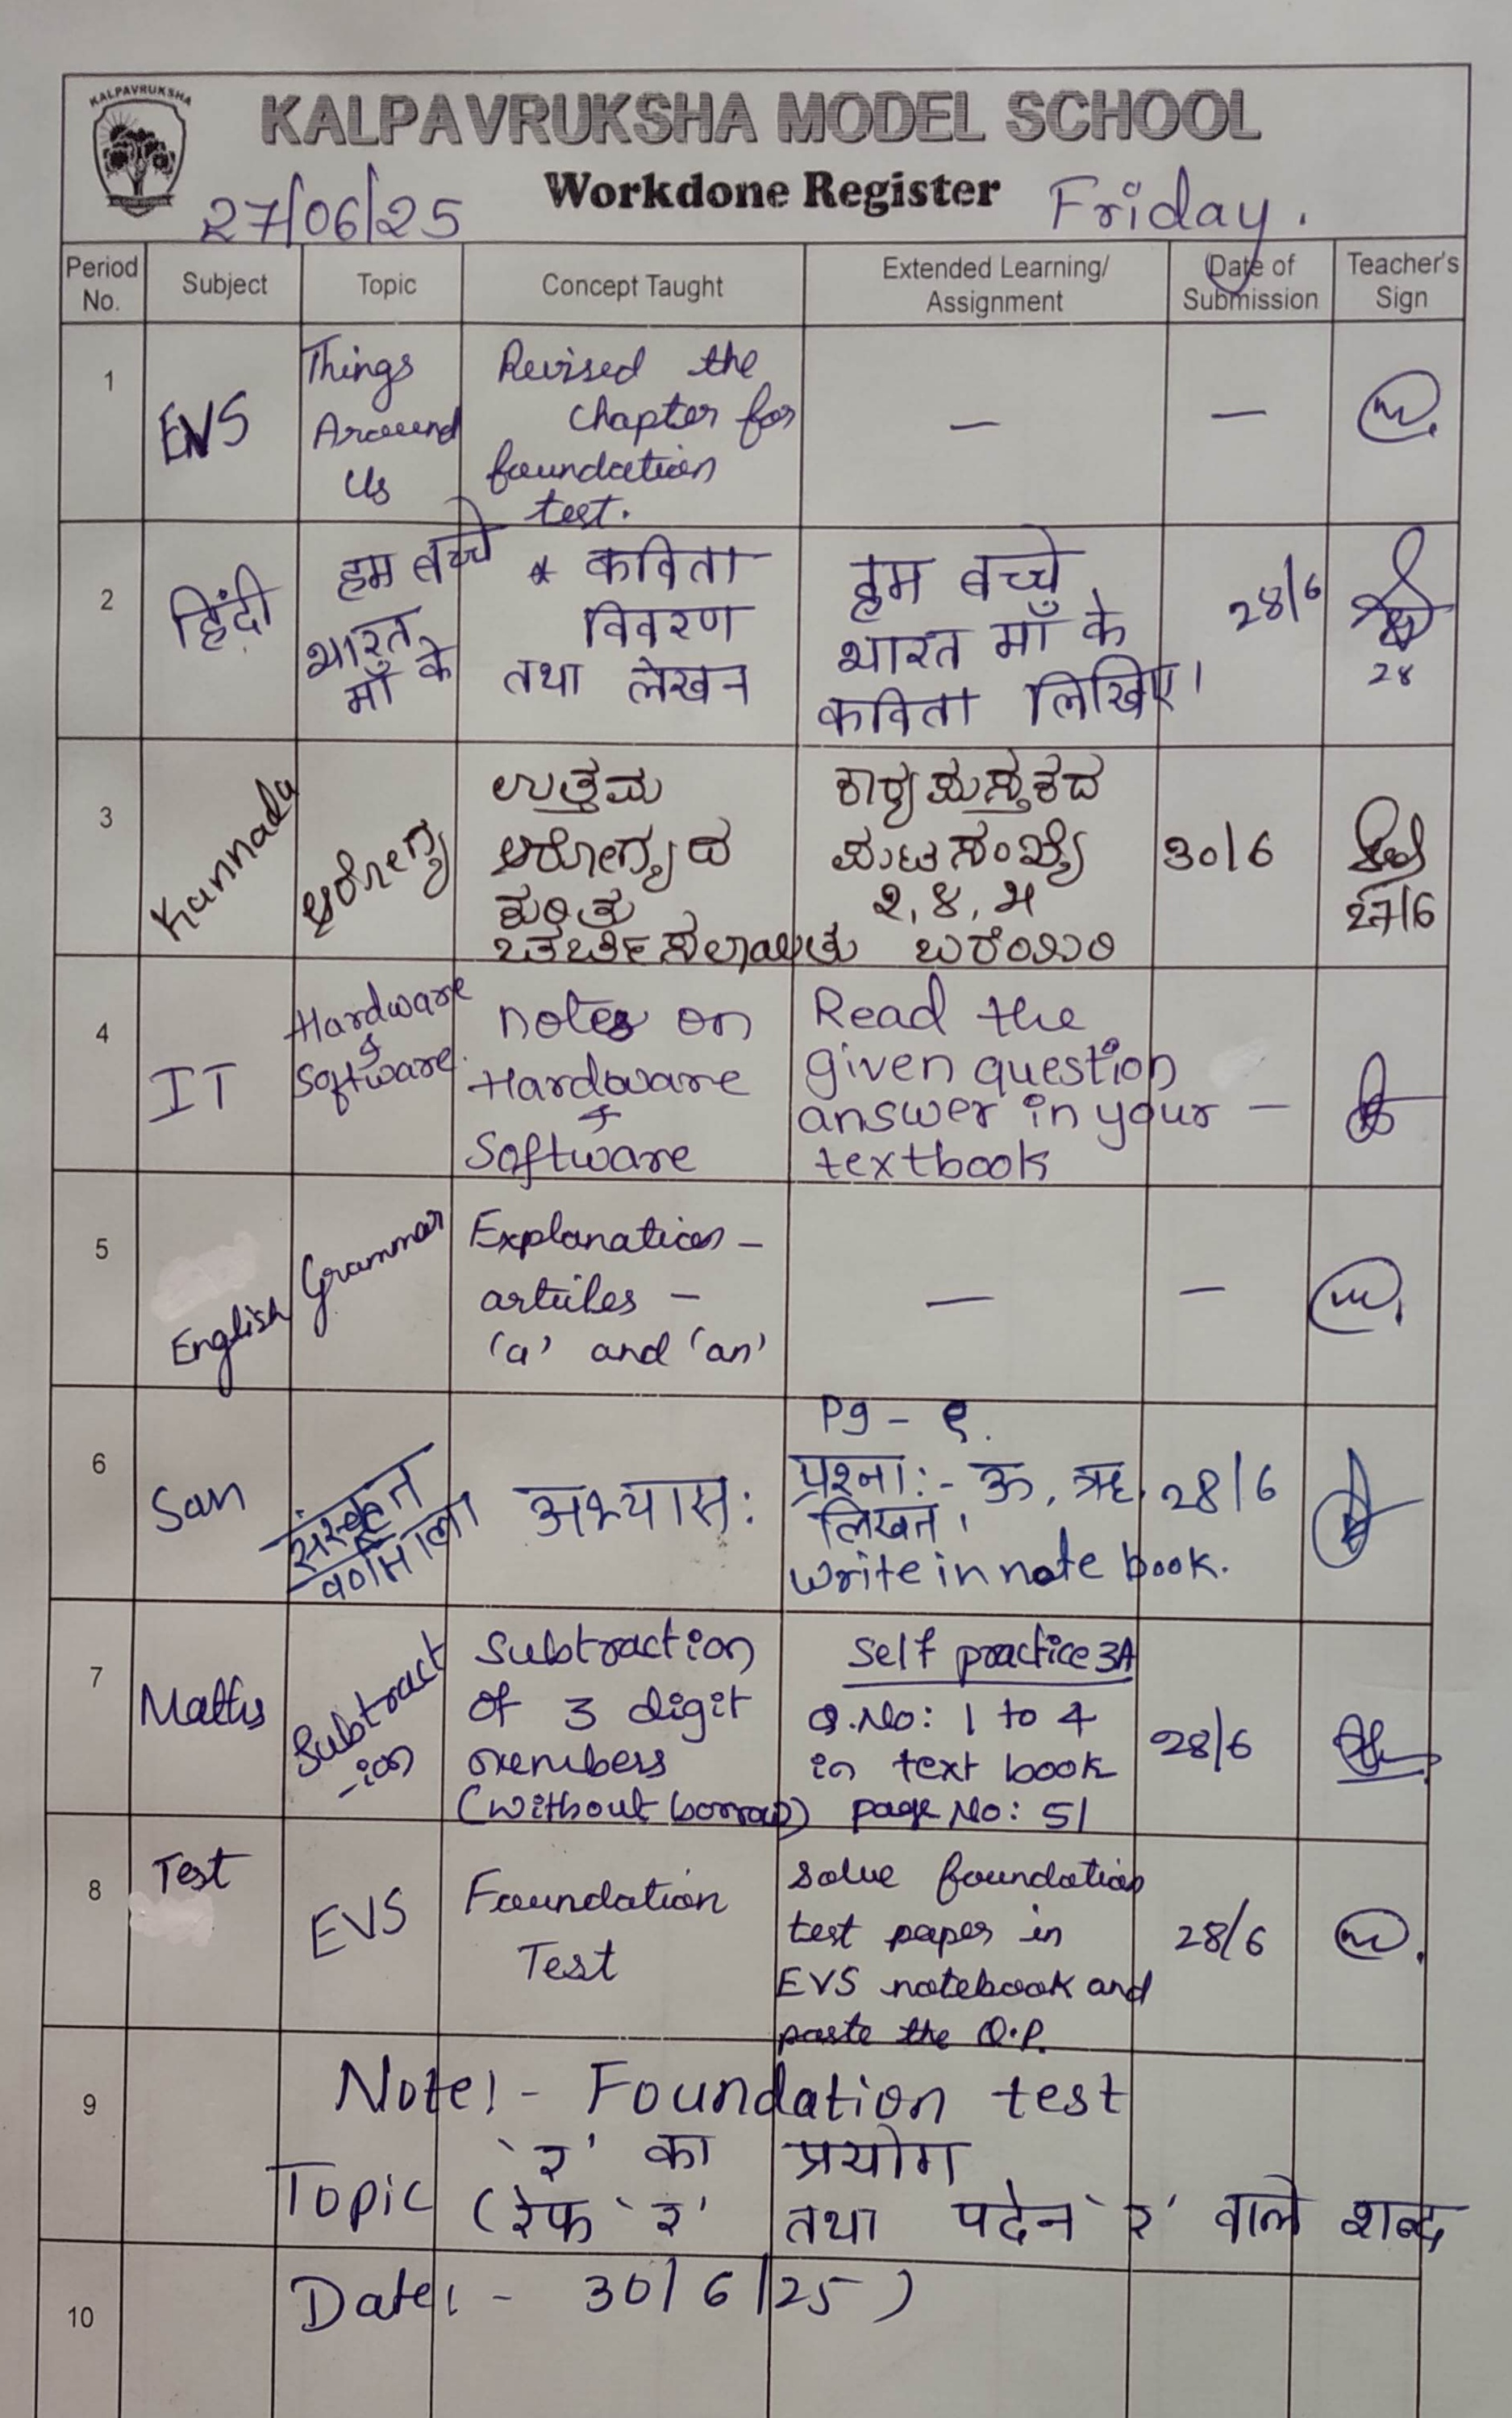 KALPAVRUKSHA
KALPAVRUKSHA MODEL SCHOOL
Workdone Register
27/06/25
Friday.
Period No.
Subject
Topic
Concept Taught
Extended Learning/
Assignment
Date of
Submission
Teacher's
Sign
1
EVS
Things
Around
Us
Revised the
chapter for
foundation
test.
—
—
2
हिंदी
हम बच्चे
भारत
माँ के
* कविता
विवरण
तथा लेखन
हम बच्चे
भारत माँ के
कविता लिखिए।
28/6
28
3
Kannada
ಆರೋಗ್ಯ
ಉತ್ತಮ
ಆರೋಗ್ಯದ
ಕುರಿತು
ಕಾರ್ಯಪುಸ್ತಕದ
ಪುಟ ಸಂಖ್ಯೆ
೨, ೪, ೫
ಬರೆಯಿರಿ
30/6
27/6
4
IT
Hardware
&
Software.
notes on
Hardware
&
Software
Read the
given question
answer in your
textbook
—
5
English
Grammar
Explanation –
articles –
'a' and 'an'
—
—
6
San
संस्कृत
वर्णमाला
अभ्यास:
Pg - ९.
प्रश्ना:- ऊ, ऋ.
लिखत।
write in note book.
28/6
7
Maths
Subtract
-ion
Subtraction
of 3 digit
numbers
(without borrow)
Self practice 3A
Q.No: 1 to 4
in text book
page No: 51
28/6
8
Test
EVS
Foundation
Test
Solve foundation
test paper in
EVS notebook and
paste the Q.P.
28/6
9
Note:- Foundation test
Topic
'र' का प्रयोग
(रेफ 'र' तथा पदेन 'र' वाले शब्द
10
Date:- 30/6/25)